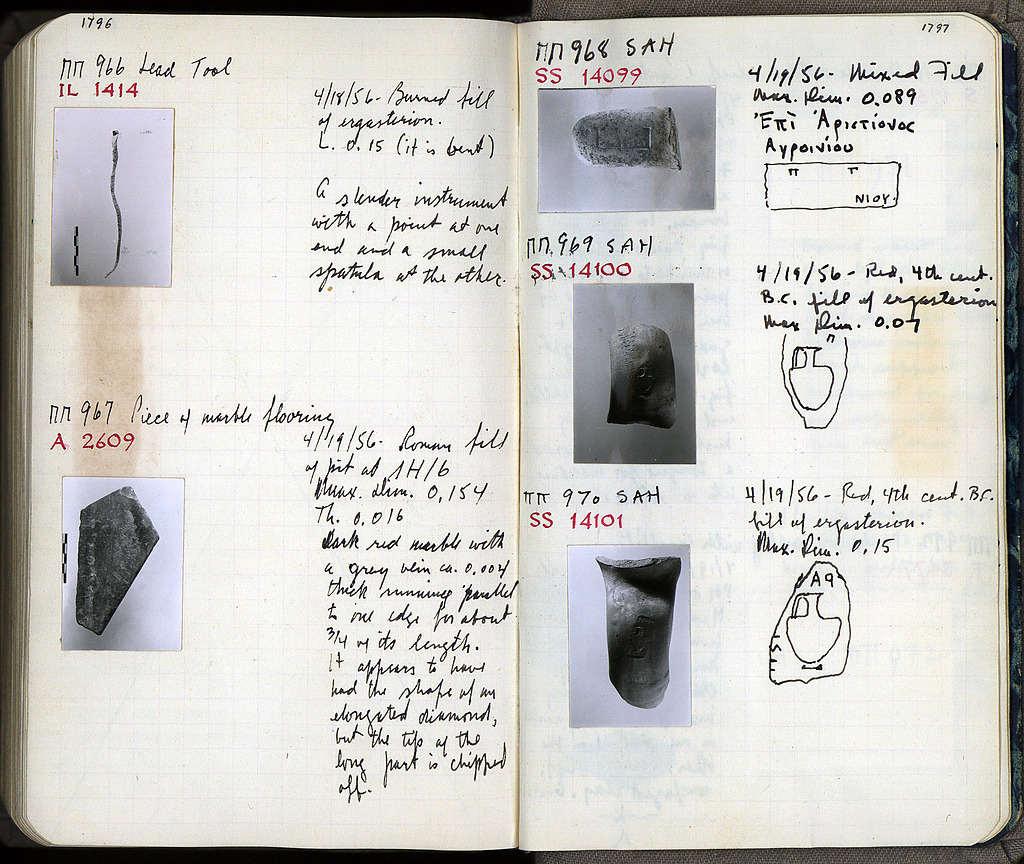 1796
ΠΠ 966 Lead Tool
IL 1414
4/18/56 - Burned fill
of ergasterion.
L. 0.15 (it is bent)
A slender instrument
with a point at one
end and a small
spatula at the other.
ΠΠ 967 Piece of marble flooring
A 2609
4/19/56 - Roman fill
of pit at 1H/6
Max. dim. 0,154
Th. 0.016
Dark red marble with
a grey vein ca. 0.004
thick running parallel
to one edge for about
3/4 of its length.
It appears to have
had the shape of an
elongated diamond,
but the tip of the
long part is chipped
off.
1797
ΠΠ 968 SAH
SS 14099
4/19/56 - Mixed Fill
Max. Dim. 0.089
Ἐπὶ Ἀριστίωνος
Αγροινίου
Π Τ
ΝΙΟΥ.
ΠΠ 969 SAH
SS 14100
4/19/56 - Red, 4th cent.
B.C. fill of ergasterion
Max Dim. 0.07
Π
ΠΠ 970 SAH
SS 14101
4/19/56 - Red, 4th cent. B.C.
fill of ergasterion.
Max. Dim. 0.15